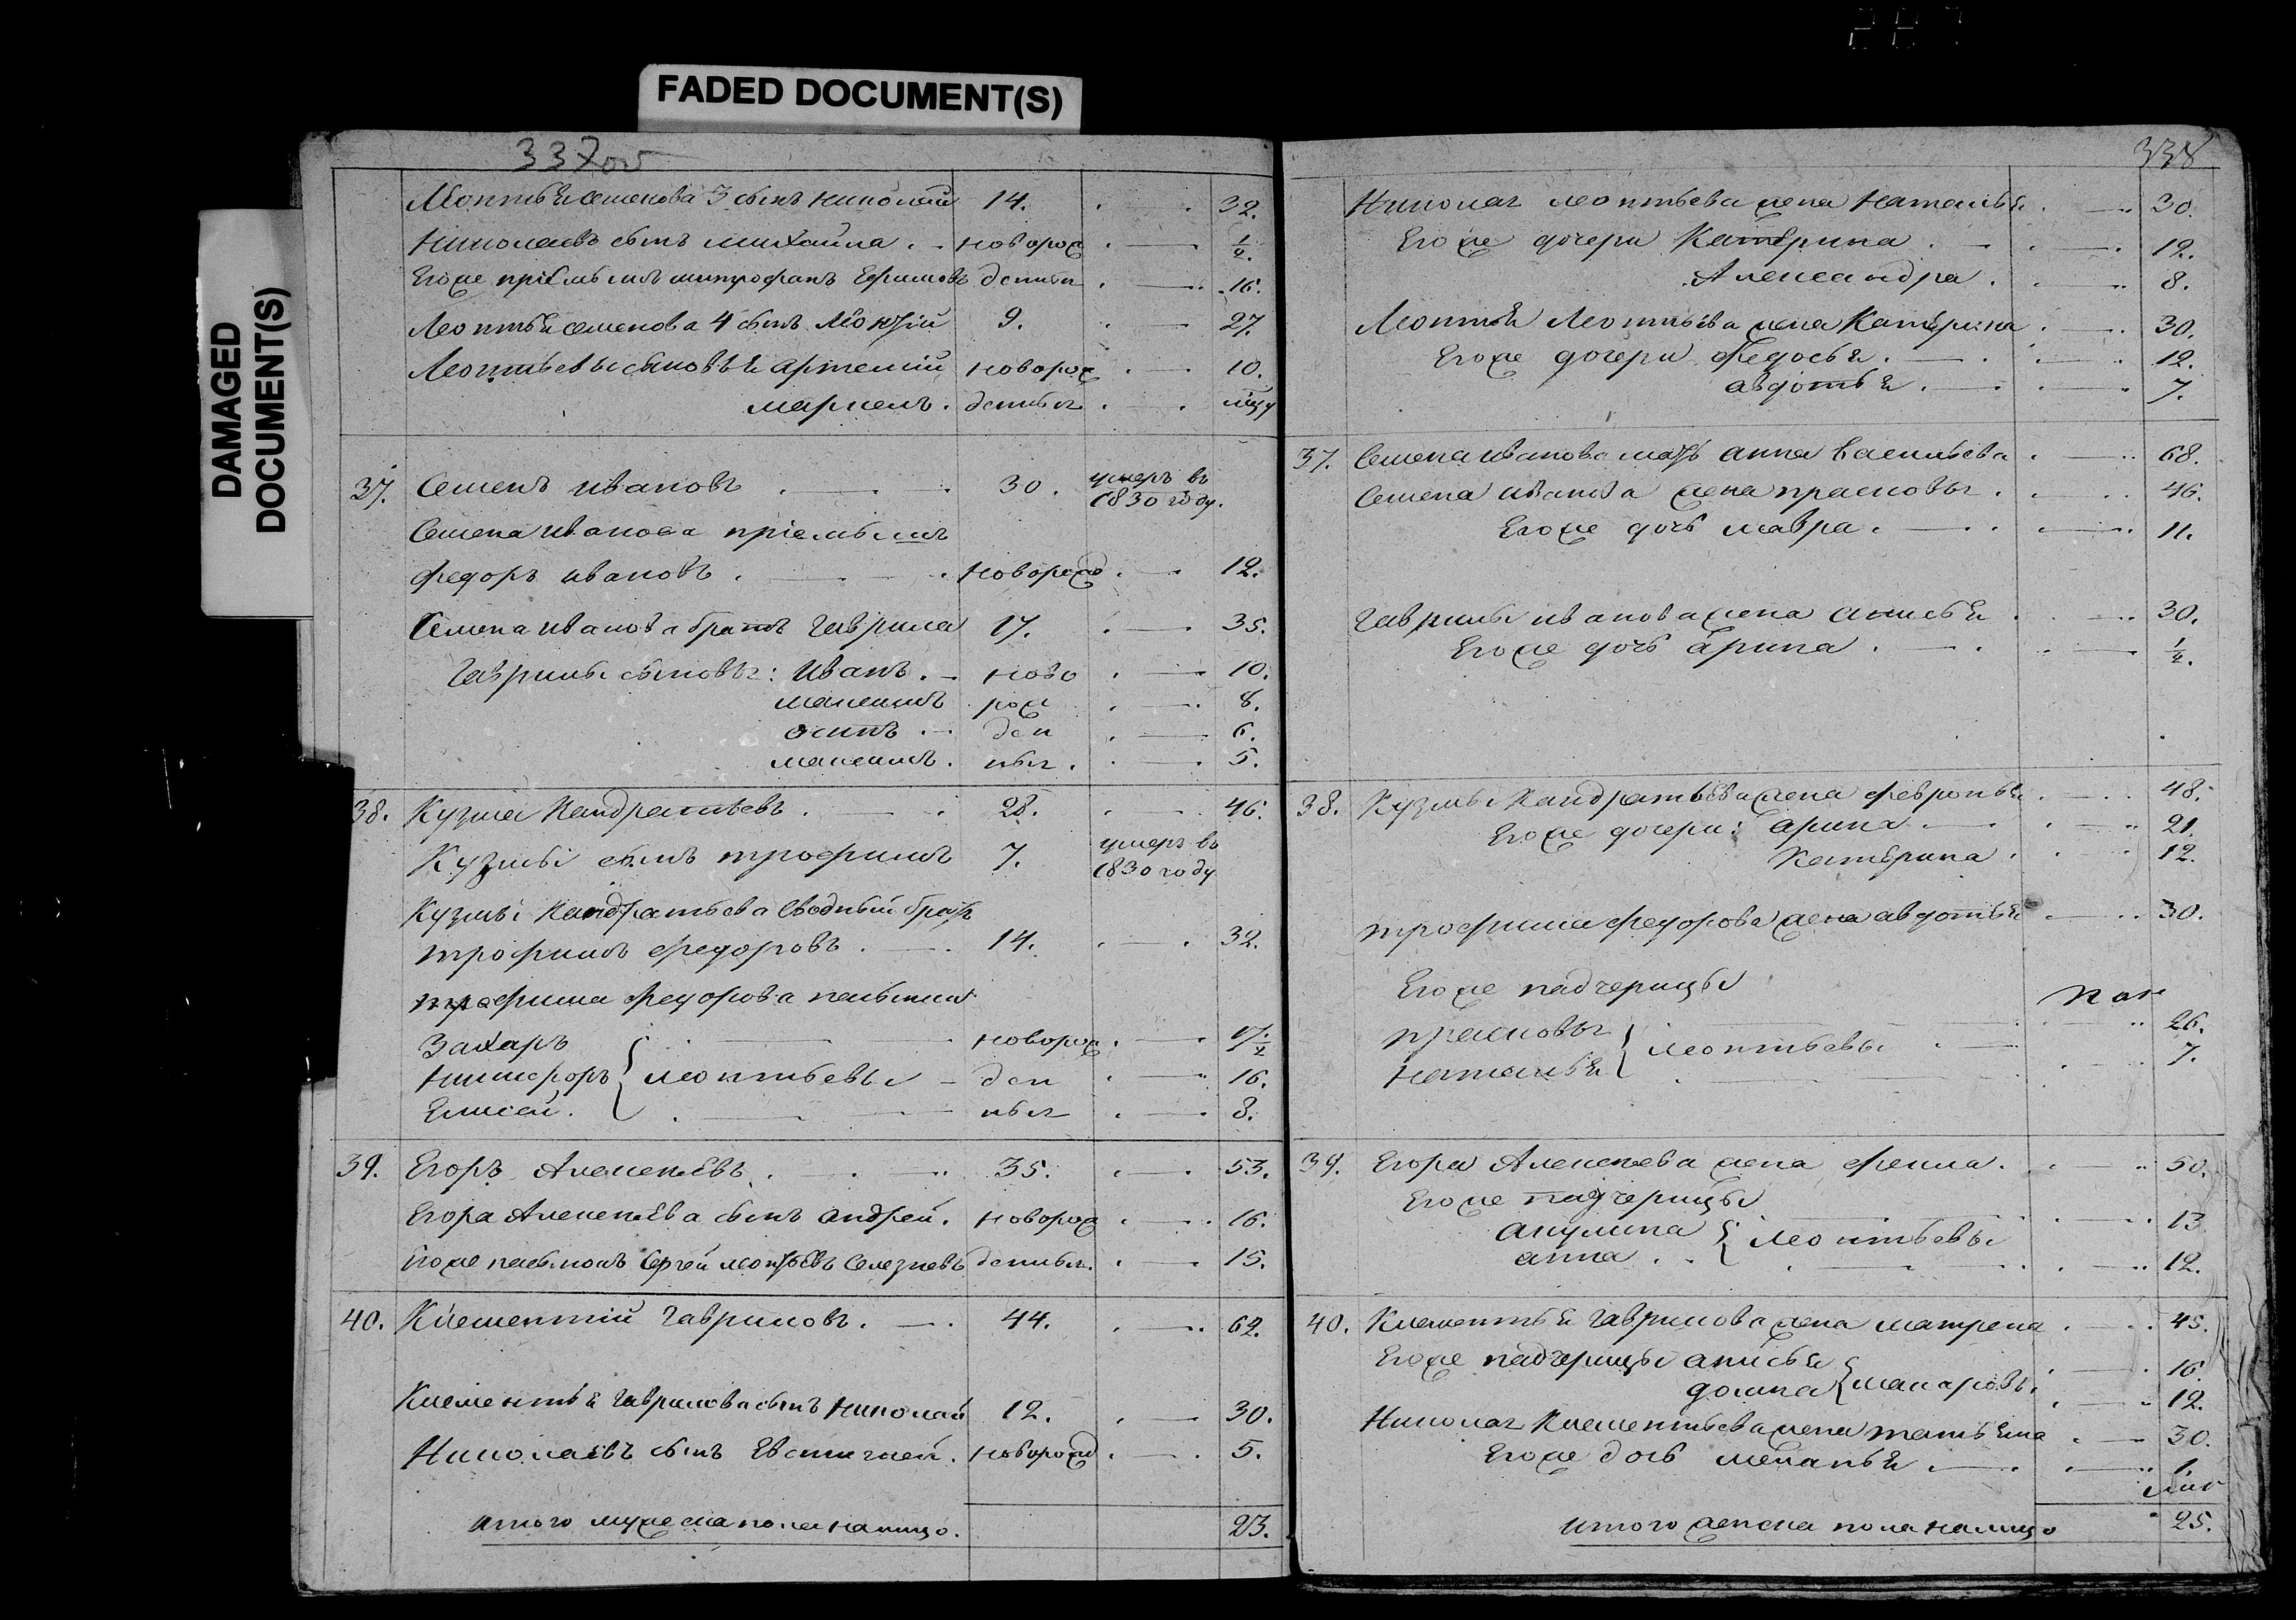 FADED DOCUMENT(S)
DAMAGED
DOCUMENT(S)
337об
Леонтья семенова 3 сынъ николай 14. 32.
Николаевъ сынъ михайла новорож ½.
Его же пріемышъ митрофанъ Ефимовъ денныя 16.
Леонтья семенова 4 сынъ леонтій 9. 27.
Леонтьевы сыновья артемій новорож 10.
маркелъ. денныя
37. Семенъ ивановъ 30. умеръ въ 1830 году.
Семена иванова пріемышъ
федоръ ивановъ. новорожд 12.
Семена иванова братъ гаврила 17. 35.
гаврилы сыновья: иванъ. ново 10.
максимъ рож 8.
осипъ ден 6.
максимъ. ныя. 5.
38. Кузма Кандратьевъ 28. 46.
Кузмы сынъ трофимъ 7. умеръ въ 1830 году
Кузмы Кандратьева сводный братъ
трофимъ федоровъ. 14. 32.
трофима федорова пасынки
Захаръ новорож 17½
никифоръ } леонтьевы ден 16.
Елисей. ныя 8.
39. Егоръ Алексеевъ. 35. 53.
Егора Алексеева сынъ андрей. новорож 16.
Его же пасынокъ Сергей леонтьевъ Селезневъ денныя. 15.
40. Клементий гавриловъ. 44. 62.
Клементья гаврилова сынъ николай 12. 30.
Николаевъ сынъ Евстигней. новорожд 5.
итого мужеска пола налицо. 23.
338
Николая леонтьева жена наталья 30.
Его же дочери Катерина 12.
Александра. 8.
Леонтья Леонтьева жена Катерина 30.
Его же дочери федосья. 12.
авдотья. 7.
37. Семена иванова мать анна васильева 68.
Семена иванова жена прасковья. 46.
Его же дочь мавра. 11.
гаврилы иванова жена анисья 30.
Его же дочь арина ½.
38. Кузмы Кандратьева жена февронья 48.
Его же дочери: арина 21.
Катерина. 12.
трофима федорова жена авдотья 30.
Его же падчерицы
прасковья 26.
наталья } леонтьевы 7.
39. Егора Алексеева жена фекла. 50.
Его же падчерицы
акулина } леонтьевы 13
анна 12.
40. Клементья гаврилова жена матрена 45.
Его же падчерицы анисья 16.
домна } макаровы 12.
Николая Клементьева жена татьяна 30.
Его же дочь меланья 1.
итого женска пола налицо 25.